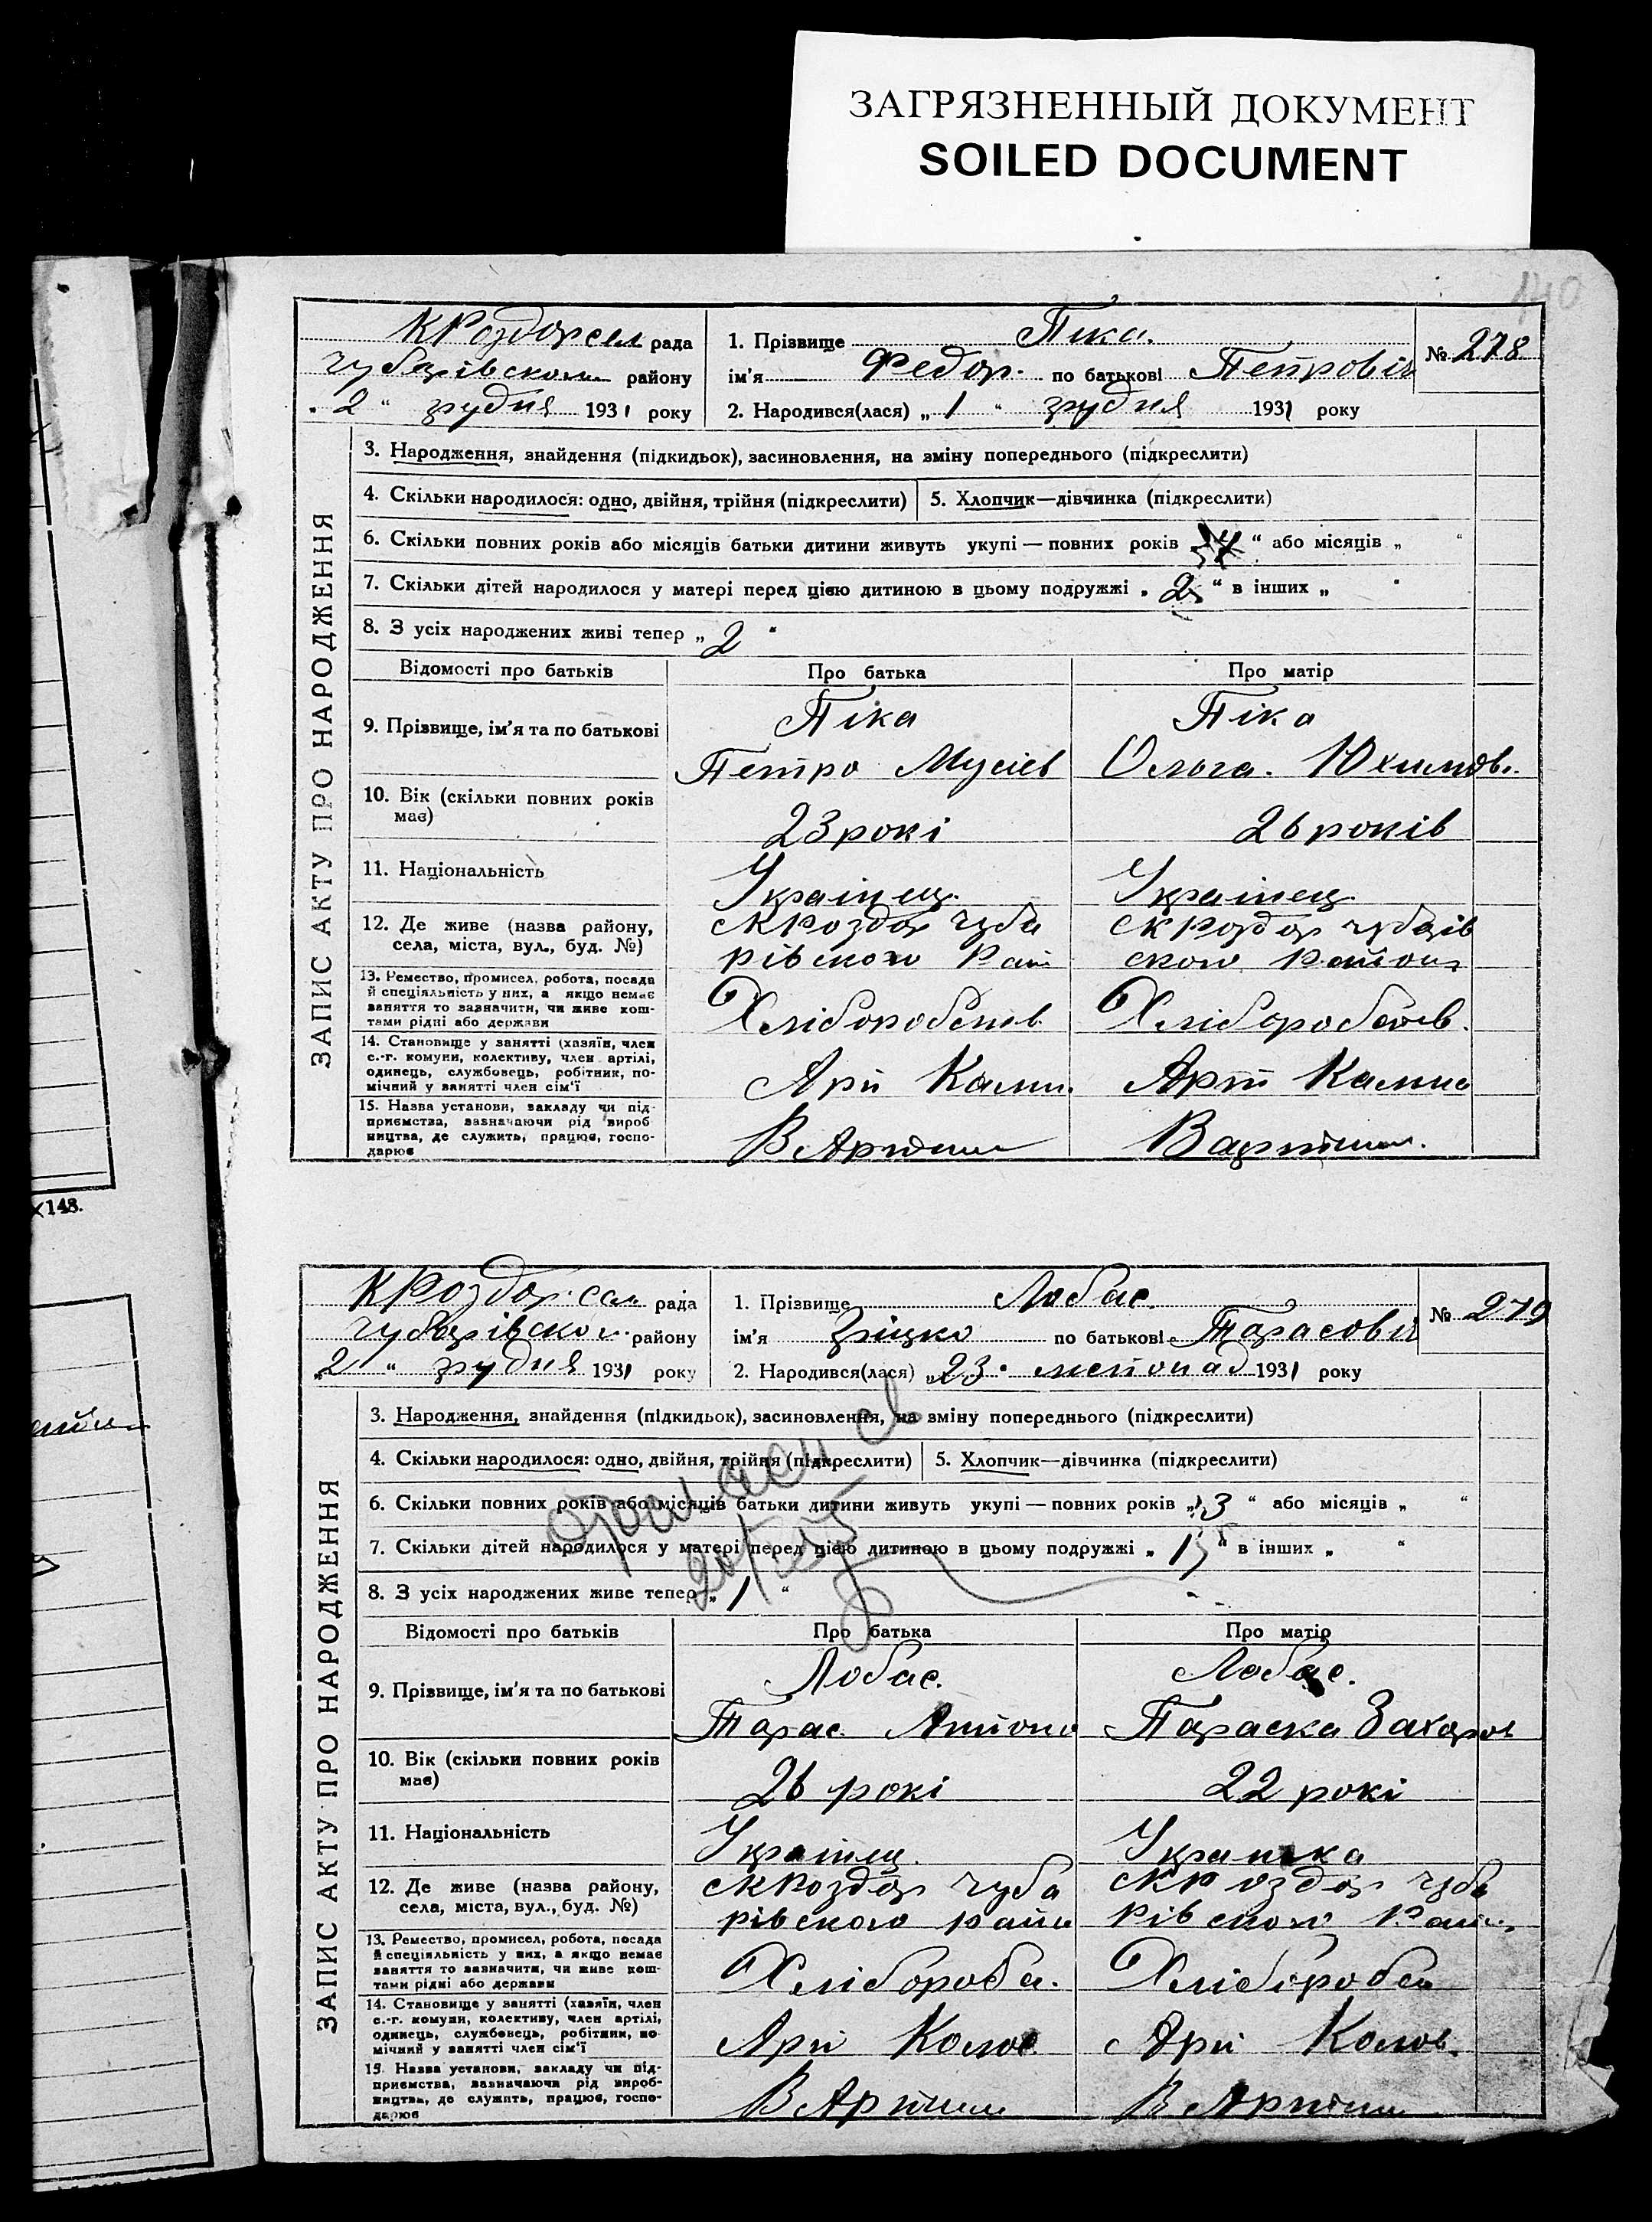 ЗАГРЯЗНЕННЫЙ ДОКУМЕНТ
SOILED DOCUMENT
140
КРоздорсел рада
чубарівском району
„2“ грудня 1931 року
1. Прізвище Піка.
ім'я Федор. по батькові Петровіч
2. Народився(лася) „1“ грудня 1931 року
№ 278
ЗАПИС АКТУ ПРО НАРОДЖЕННЯ
3. Народження, знайдення (підкидьок), засиновлення, на зміну попереднього (підкреслити)
4. Скільки народилося: одно, двійня, трійня (підкреслити) 5. Хлопчик—дівчинка (підкреслити)
6. Скільки повних років або місяців батьки дитини живуть укупі — повних років „ “ або місяців „ “
7. Скільки дітей народилося у матері перед цією дитиною в цьому подружжі „2“ в інших „ “
8. З усіх народжених живі тепер „2“
Відомості про батьків Про батька Про матір
9. Прізвище, ім'я та по батькові
Піка Піка
Петро Мусієв Ольга. Юхимов.
10. Вік (скільки повних років має)
23 рокі 26 років
11. Національність
Українец. Українец
12. Де живе (назва району, села, міста, вул., буд. №)
скРоздор чуба скРоздор чубарів
рівского Рай ского Района
13. Ремество, промисел, робота, посада
й спеціяльність у них, а якщо немає
заняття то зазначити, чи живе кош-
тами рідні або держави
14. Становище у занятті (хазяїн, член
с.-г. комуни, колективу, член артілі,
одинець, службовець, робітник, по-
мічний у занятті член сім'ї
15. Назва установи, закладу чи під-
приємства, зазначаючи рід вироб-
ництва, де служить, працює, госпо-
дарює
КРоздор. сел рада
чубарівском району
„2“ грудня 1931 року
1. Прізвище Лобас.
ім'я Гріцко по батькові Тарасовіч
2. Народився(лася) „23“ листопад 1931 року
№ 279
ЗАПИС АКТУ ПРО НАРОДЖЕННЯ
3. Народження, знайдення (підкидьок), засиновлення, на зміну попереднього (підкреслити)
4. Скільки народилося: одно, двійня, трійня (підкреслити) 5. Хлопчик—дівчинка (підкреслити)
6. Скільки повних років або місяців батьки дитини живуть укупі — повних років „3“ або місяців „ “
7. Скільки дітей народилося у матері перед цією дитиною в цьому подружжі „1“ в інших „ “
8. З усіх народжених живе тепер „1“
Відомості про батьків Про батька Про матір
9. Прізвище, ім'я та по батькові
Лобас. Лобас.
Тарас Антоно Параска Захаров
10. Вік (скільки повних років має)
26 рокі 22 рокі
11. Національність
Українец. Українка
12. Де живе (назва району, села, міста, вул., буд. №)
скРоздор чуба скРоздор чуба
рівского райн рівского Район
13. Ремество, промисел, робота, посада
й спеціяльність у них, а якщо немає
заняття то зазначити, чи живе кош-
тами рідні або держави
Хлібороба. Хлібороба
14. Становище у занятті (хазяїн, член
с.-г. комуни, колективу, член артілі,
одинець, службовець, робітник, по-
мічний у занятті член сім'ї
15. Назва установи, закладу чи під-
приємства, зазначаючи рід вироб-
ництва, де служить, працює, госпо-
дарює
×148.